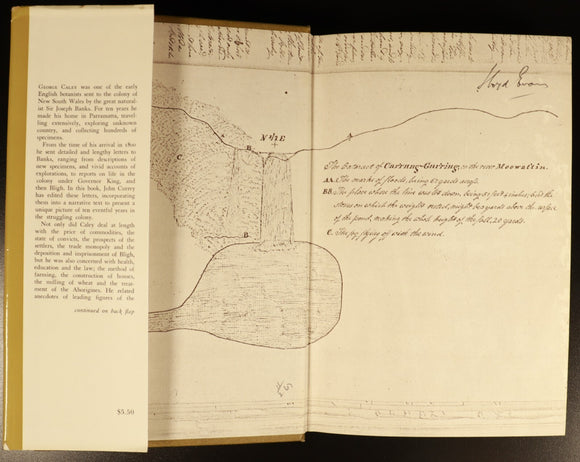 GEORGE CALEY was one of the early
English botanists sent to the colony of
New South Wales by the great natural-
ist Sir Joseph Banks. For ten years he
made his home in Parramatta, travel-
ling extensively, exploring unknown
country, and collecting hundreds of
specimens.
From the time of his arrival in 1800
he sent detailed and lengthy letters to
Banks, ranging from descriptions of
new specimens, and vivid accounts of
explorations, to reports on life in the
colony under Governor King, and
then Bligh. In this book, John Currey
has edited these letters, incorporating
them into a narrative text to present a
unique picture of ten eventful years in
the struggling colony.
Not only did Caley deal at length
with the price of commodities, the
state of convicts, the prospects of the
settlers, the trade monopoly and the
deposition and imprisonment of Bligh,
but he was also concerned with health,
education and the law; the method of
farming, the construction of houses,
the milling of wheat and the treat-
ment of the Aborigines. He related
anecdotes of leading figures of the
continued on back flap
$5.50
A
B
C
B
A
Lloyd Evans
The Cataract of Carrung-Gurring, on the river Moowattin.
AA. The marks of floods, being 62 yards wide.
BB. The place where the line was let down, being 57 feet 4 inches; but the
stone on which the weight rested, might be 3 yards above the surface
of the pond, making the whole height of the fall, 20 yards.
C. The fog flying off with the wind.